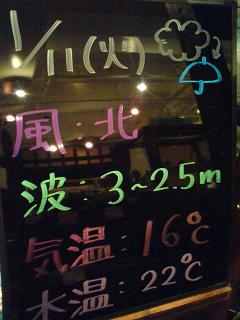 1/11(火)
風:北
波:3~2.5m
気温:16℃
水温:22℃